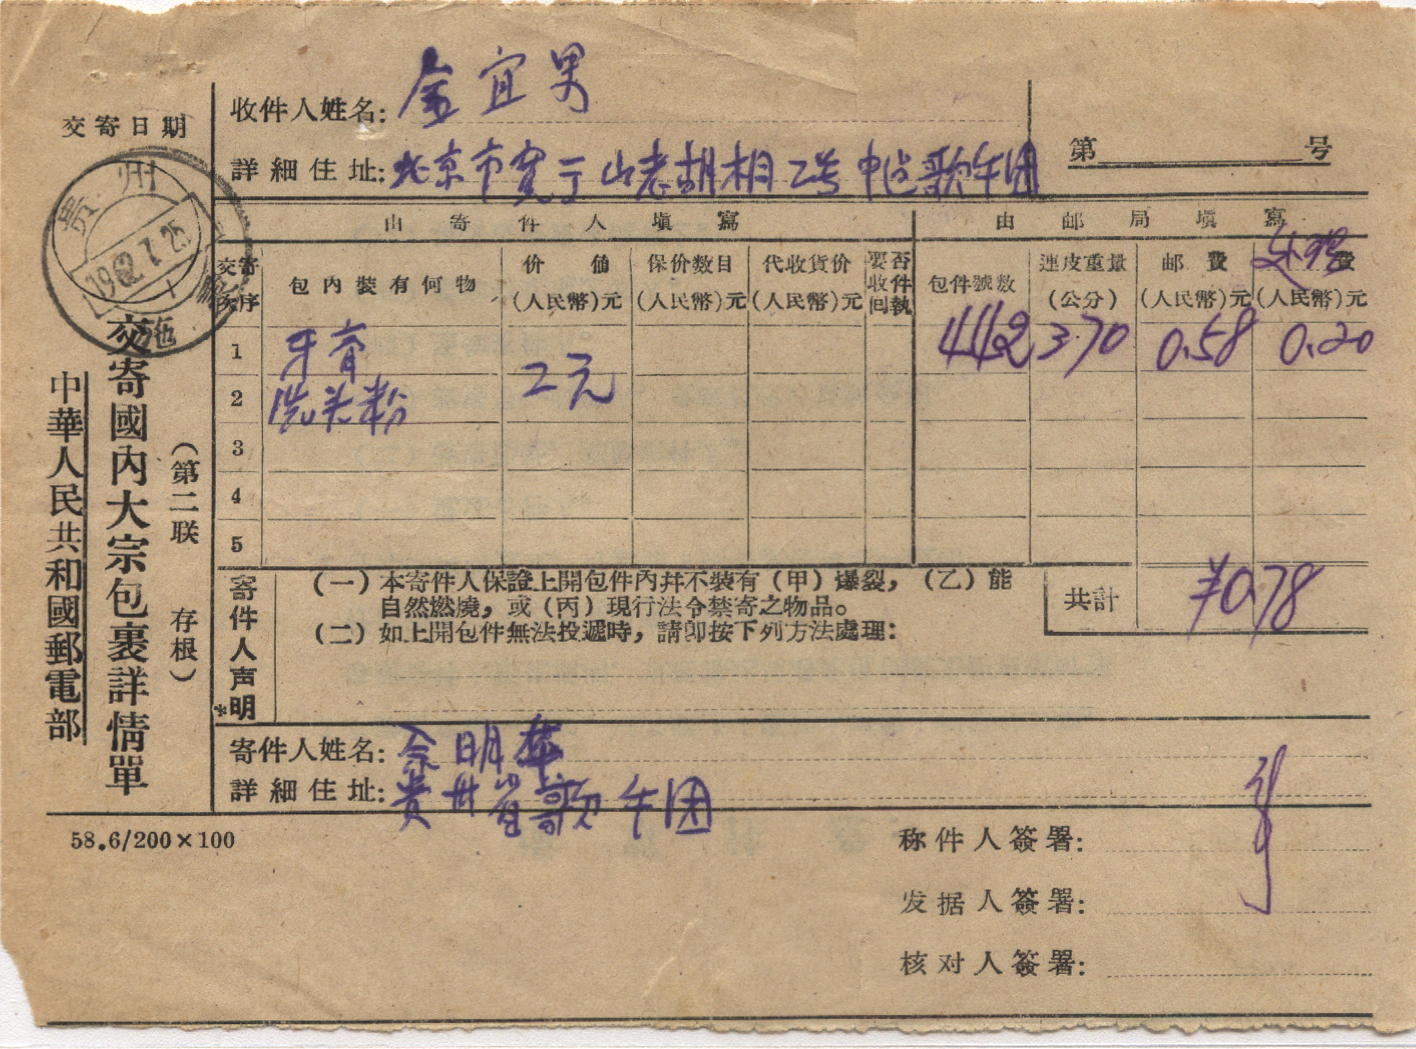 交寄日期
贵州
1962.7.25
中華人民共和國郵電部
交寄國內大宗包裹詳情單
(第二联 存根)
收件人姓名:金宜男
詳細住址:北京市
胡相2号 中
第 号
由寄件人填寫
由邮局填寫
交寄次序
包内裝有何物
价值(人民幣)元
保价数目(人民幣)元
代收貨价(人民幣)元
要否收件回執
包件號数
連皮重量(公分)
邮費(人民幣)元
費(人民幣)元
1 牙膏 442 370 0.58 0.20
2 洗头粉 2元
3
4
5
共計 ¥0.78
寄件人声明
*
(一)本寄件人保證上開包件内幷不裝有(甲)爆裂,(乙)能
自然燃燒,或(丙)現行法令禁寄之物品。
(二)如上開包件無法投遞時,請卽按下列方法處理:
寄件人姓名:余明華
詳細住址:贵州省歌午团
58.6/200×100
称件人簽署:
发据人簽署:
核对人簽署: